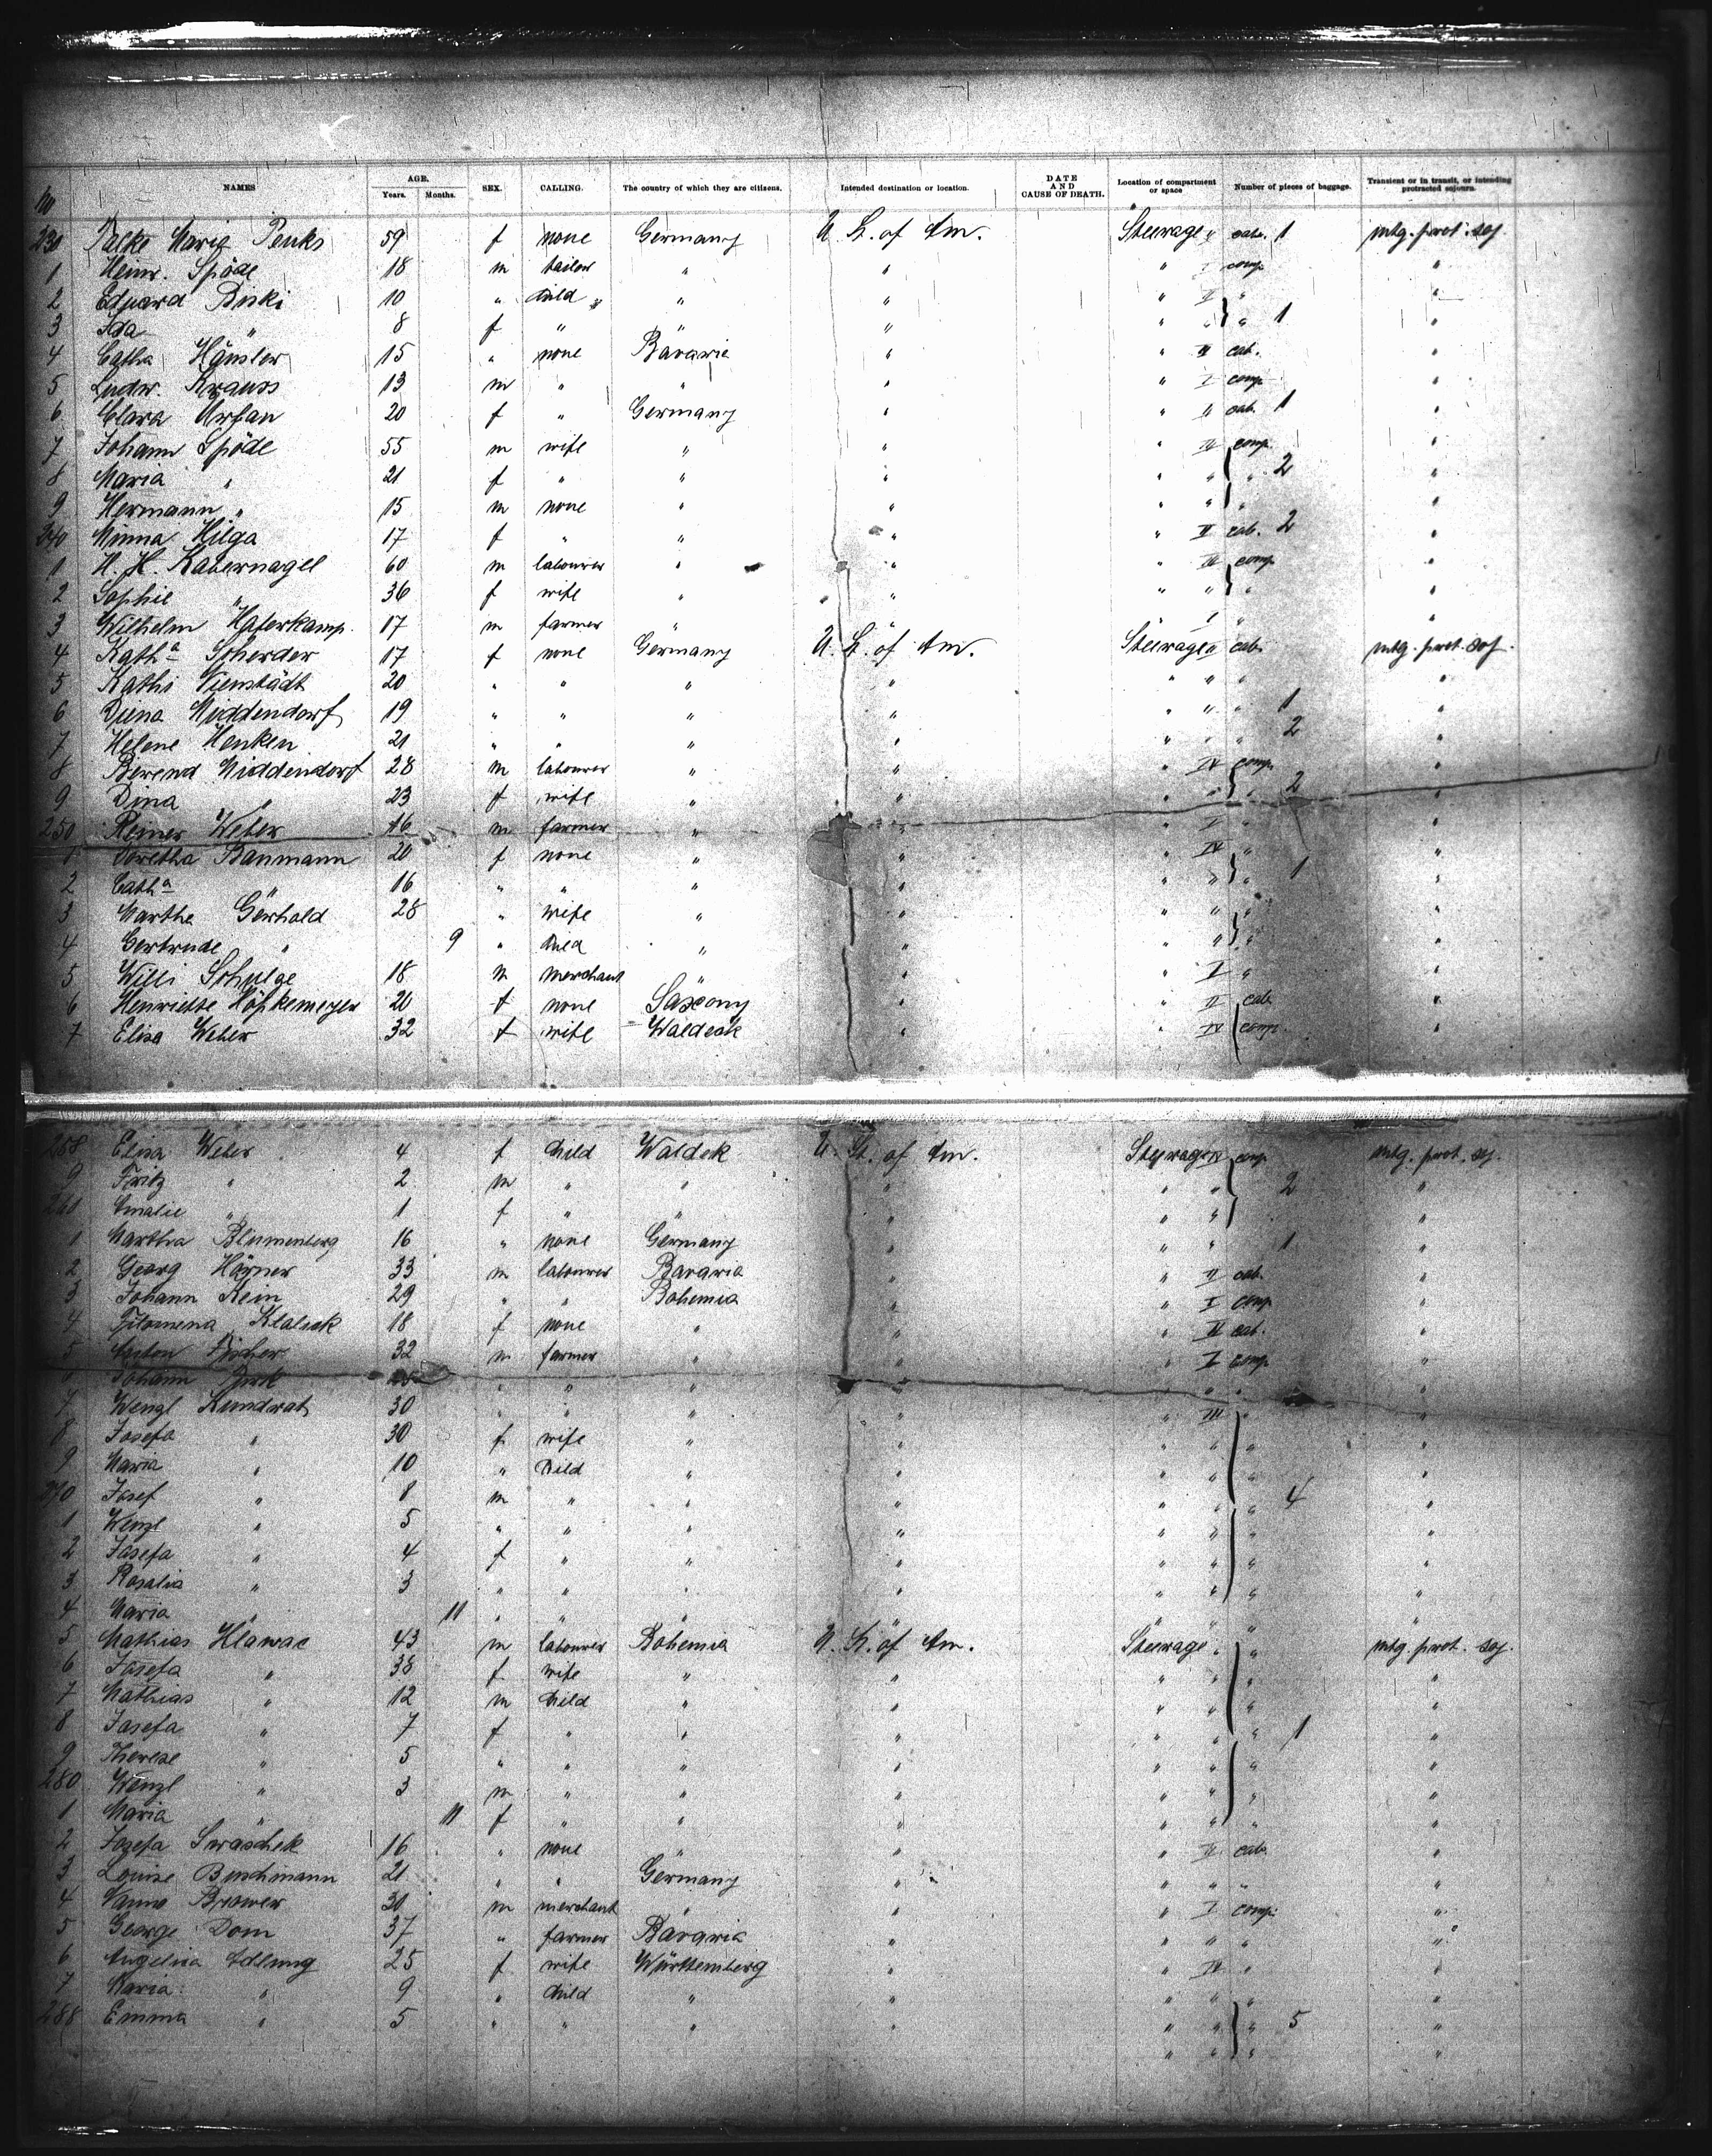 No NAMES AGE. Years. Months. SEX. CALLING. The country of which they are citizens. Intended destination or location. DATE AND CAUSE OF DEATH. Location of compartment or space Number of pieces of baggage. Transient or in transit, or intending protracted sojourn.
230 Maria 59 f none Germany U. St. of Am. Steerage II cab. 1 intg. prot. soj.
1 Heinr. Spöde 18 m tailor " " " I comp. "
2 Eduard Biski 10 " child " " " II " "
3 Ida " 8 f " " " " " " 1 "
4 Catha Häusler 15 " none Bavaria " " II cab. "
5 Ludw. Krauss 13 m " " " " I comp. "
6 Clara 20 f " Germany " " II cab. 1 "
7 Johann Spöde 55 m wife " " " comp. "
8 Maria " 21 f " " " " " " 2 "
9 Hermann " 15 m none " " " " " "
240 Minna Hilga 17 f " " " " II cab. 2 "
1 H. H. Kabernagel 60 m labourer " " " III comp. "
2 Sophie " 36 f wife " " " " " "
3 Wilhelm Haferkamp 17 m farmer " " " I " "
4 Katha Scherder 17 f none Germany U. St. of Am. Steerage II cab. intg. prot. soj.
5 Kathi Vienstädt 20 " " " " " " " "
6 Diena Middendorf 19 " " " " " " " 1 "
7 Helene Henken 21 " " " " " " " 2 "
8 Berend Middendorf 28 m labourer " " " IV comp. "
9 Dina " 23 f wife " " " " " 2 "
250 Reiner Weber 16 m farmer " " " I " "
1 Doretha Baumann 20 f none " " " IV " "
2 Catha " 16 " " " " " " " 1 "
3 Marthe Gerhold 28 " wife " " " " " "
4 Gertrude " 9 " child " " " " " "
5 Willi Schulze 18 m merchant " " " I " "
6 Henriette Höpkemeyer 20 f none Saxony " " II cab. "
7 Elisa Weber 32 f wife Waldeck " " IV comp. "
258 Elisa Weber 4 f child Waldek U. St. of Am. Steerage IV comp. intg. prot. soj.
9 Fritz " 2 m " " " " " 2 "
260 Amalie " 1 f " " " " " "
1 Martha Blumenberg 16 " none Germany " " " 1 "
2 Georg Härner 33 m labourer Bavaria " " II cab. "
3 Johann Kein 29 " " Bohemia " " I comp. "
4 Filomena 18 f none " " " II cab. "
5 Anton Fischer 32 m farmer " " " I comp. "
6 Johann " " " " " " " "
7 Wenzl Kundrat 30 " " " " " III " "
8 Josefa " 30 f wife " " " " " "
9 Maria " 10 " child " " " " " "
270 Josef " 8 m " " " " " " 4 "
1 Wenzl " 5 " " " " " " " "
2 Josefa " 4 f " " " " " " "
3 Rosalia " 3 " " " " " " " "
4 Maria " 11 " " " " " " " "
5 Mathias Hlawac 43 m labourer Bohemia U. St. of Am. Steerage " " intg. prot. soj.
6 Josefa " 38 f wife " " " " " "
7 Mathias " 12 m child " " " " " "
8 Josefa " 7 f " " " " " " 1 "
9 Therese " 5 " " " " " " " "
280 Wenzl " 3 m " " " " " " "
1 Maria " 11 f " " " " " " "
2 Josefa Swaschek 16 " none " " " II cab. "
3 Louise Buschmann 21 " " Germany " " " " "
4 Brower 30 m merchant " " " I comp. "
5 George Dom 37 " farmer Bavaria " " " " "
6 Angelica Adlung 25 f wife Württemberg " " IV " "
7 Maria " 9 " child " " " " " "
288 Emma " 5 " " " " " " " 5 "
" " " "